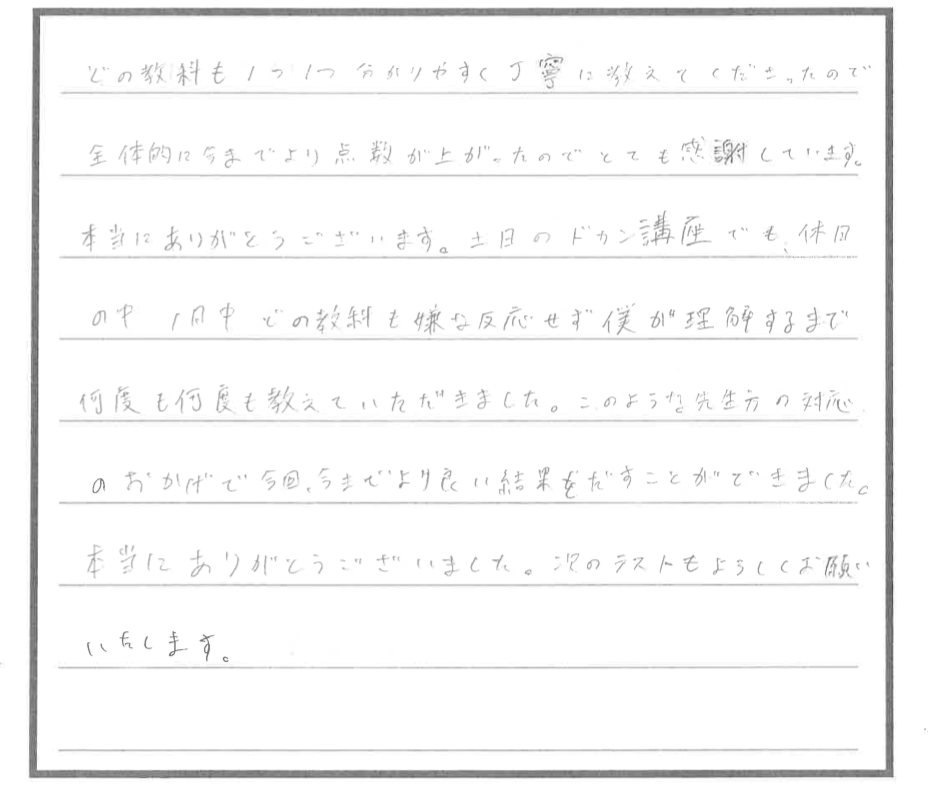 どの教科も1つ1つ分かりやすく丁寧に教えてくださったので
全体的に今までより点数が上がったのでとても感謝しています。
本当にありがとうございます。土日のドカン講座でも、休日
の中 1日中 どの教科も嫌な反応せず僕が理解するまで
何度も何度も教えていただきました。このような先生方の対応
のおかげで今回、今までより良い結果をだすことができました。
本当にありがとうございました。次のテストもよろしくお願い
いたします。